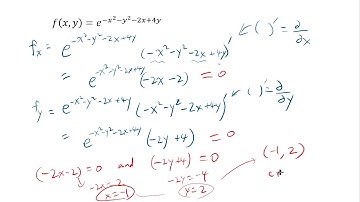 f(x,y)=e^{-x²-y²-2x+4y}
f_x = e^{-x²-y²-2x+4y} (-x²-y²-2x+4y)' ( )' = ∂/∂x
= e^{-x²-y²-2x+4y} (-2x-2) = 0
f_y = e^{-x²-y²-2x+4y} (-x²-y²-2x+4y)' ( )' = ∂/∂y
= e^{-x²-y²-2x+4y} (-2y+4) = 0
(-2x-2)=0 and (-2y+4)=0 (-1, 2)
-2x=2 -2y=-4
x=-1 y=2